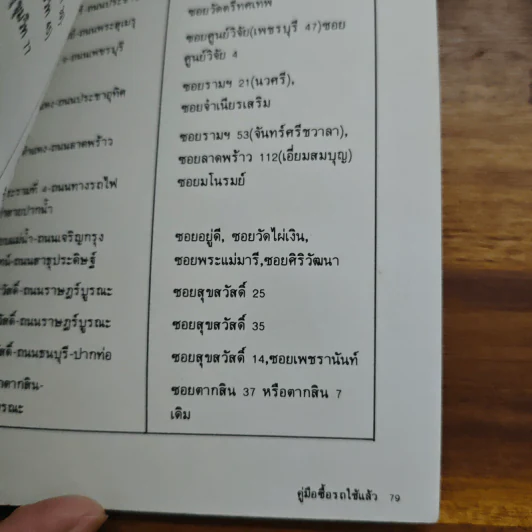 ซอยวัดตรีทศเทพ
ซอยศูนย์วิจัย(เพชรบุรี 47)ซอย
ศูนย์วิจัย 4
ถนนเพชรบุรี
ซอยรามฯ 21(นวศรี),
ถนนประชาอุทิศ
ซอยจำเนียรเสริม
ซอยรามฯ 53(จันทร์ศรีชวาลา),
ถนนลาดพร้าว
ซอยลาดพร้าว 112(เอี่ยมสมบุญ)
4-ถนนทางรถไฟ
ซอยมโนรมย์
สายปากน้ำ
ซอยอยู่ดี, ซอยวัดไผ่เงิน,
ถนนเจริญกรุง
ซอยพระแม่มารี,ซอยศิริวัฒนา
ถนนสาธุประดิษฐ์
ซอยสุขสวัสดิ์ 25
สวัสดิ์-ถนนราษฎร์บูรณะ
ซอยสุขสวัสดิ์ 35
สวัสดิ์-ถนนราษฎร์บูรณะ
ซอยสุขสวัสดิ์ 14,ซอยเพชรานันท์
ถนนธนบุรี-ปากท่อ
ซอยตากสิน 37 หรือตากสิน 7
ตากสิน-
เดิม
บูรณะ
คู่มือซื้อรถใช้แล้ว 79